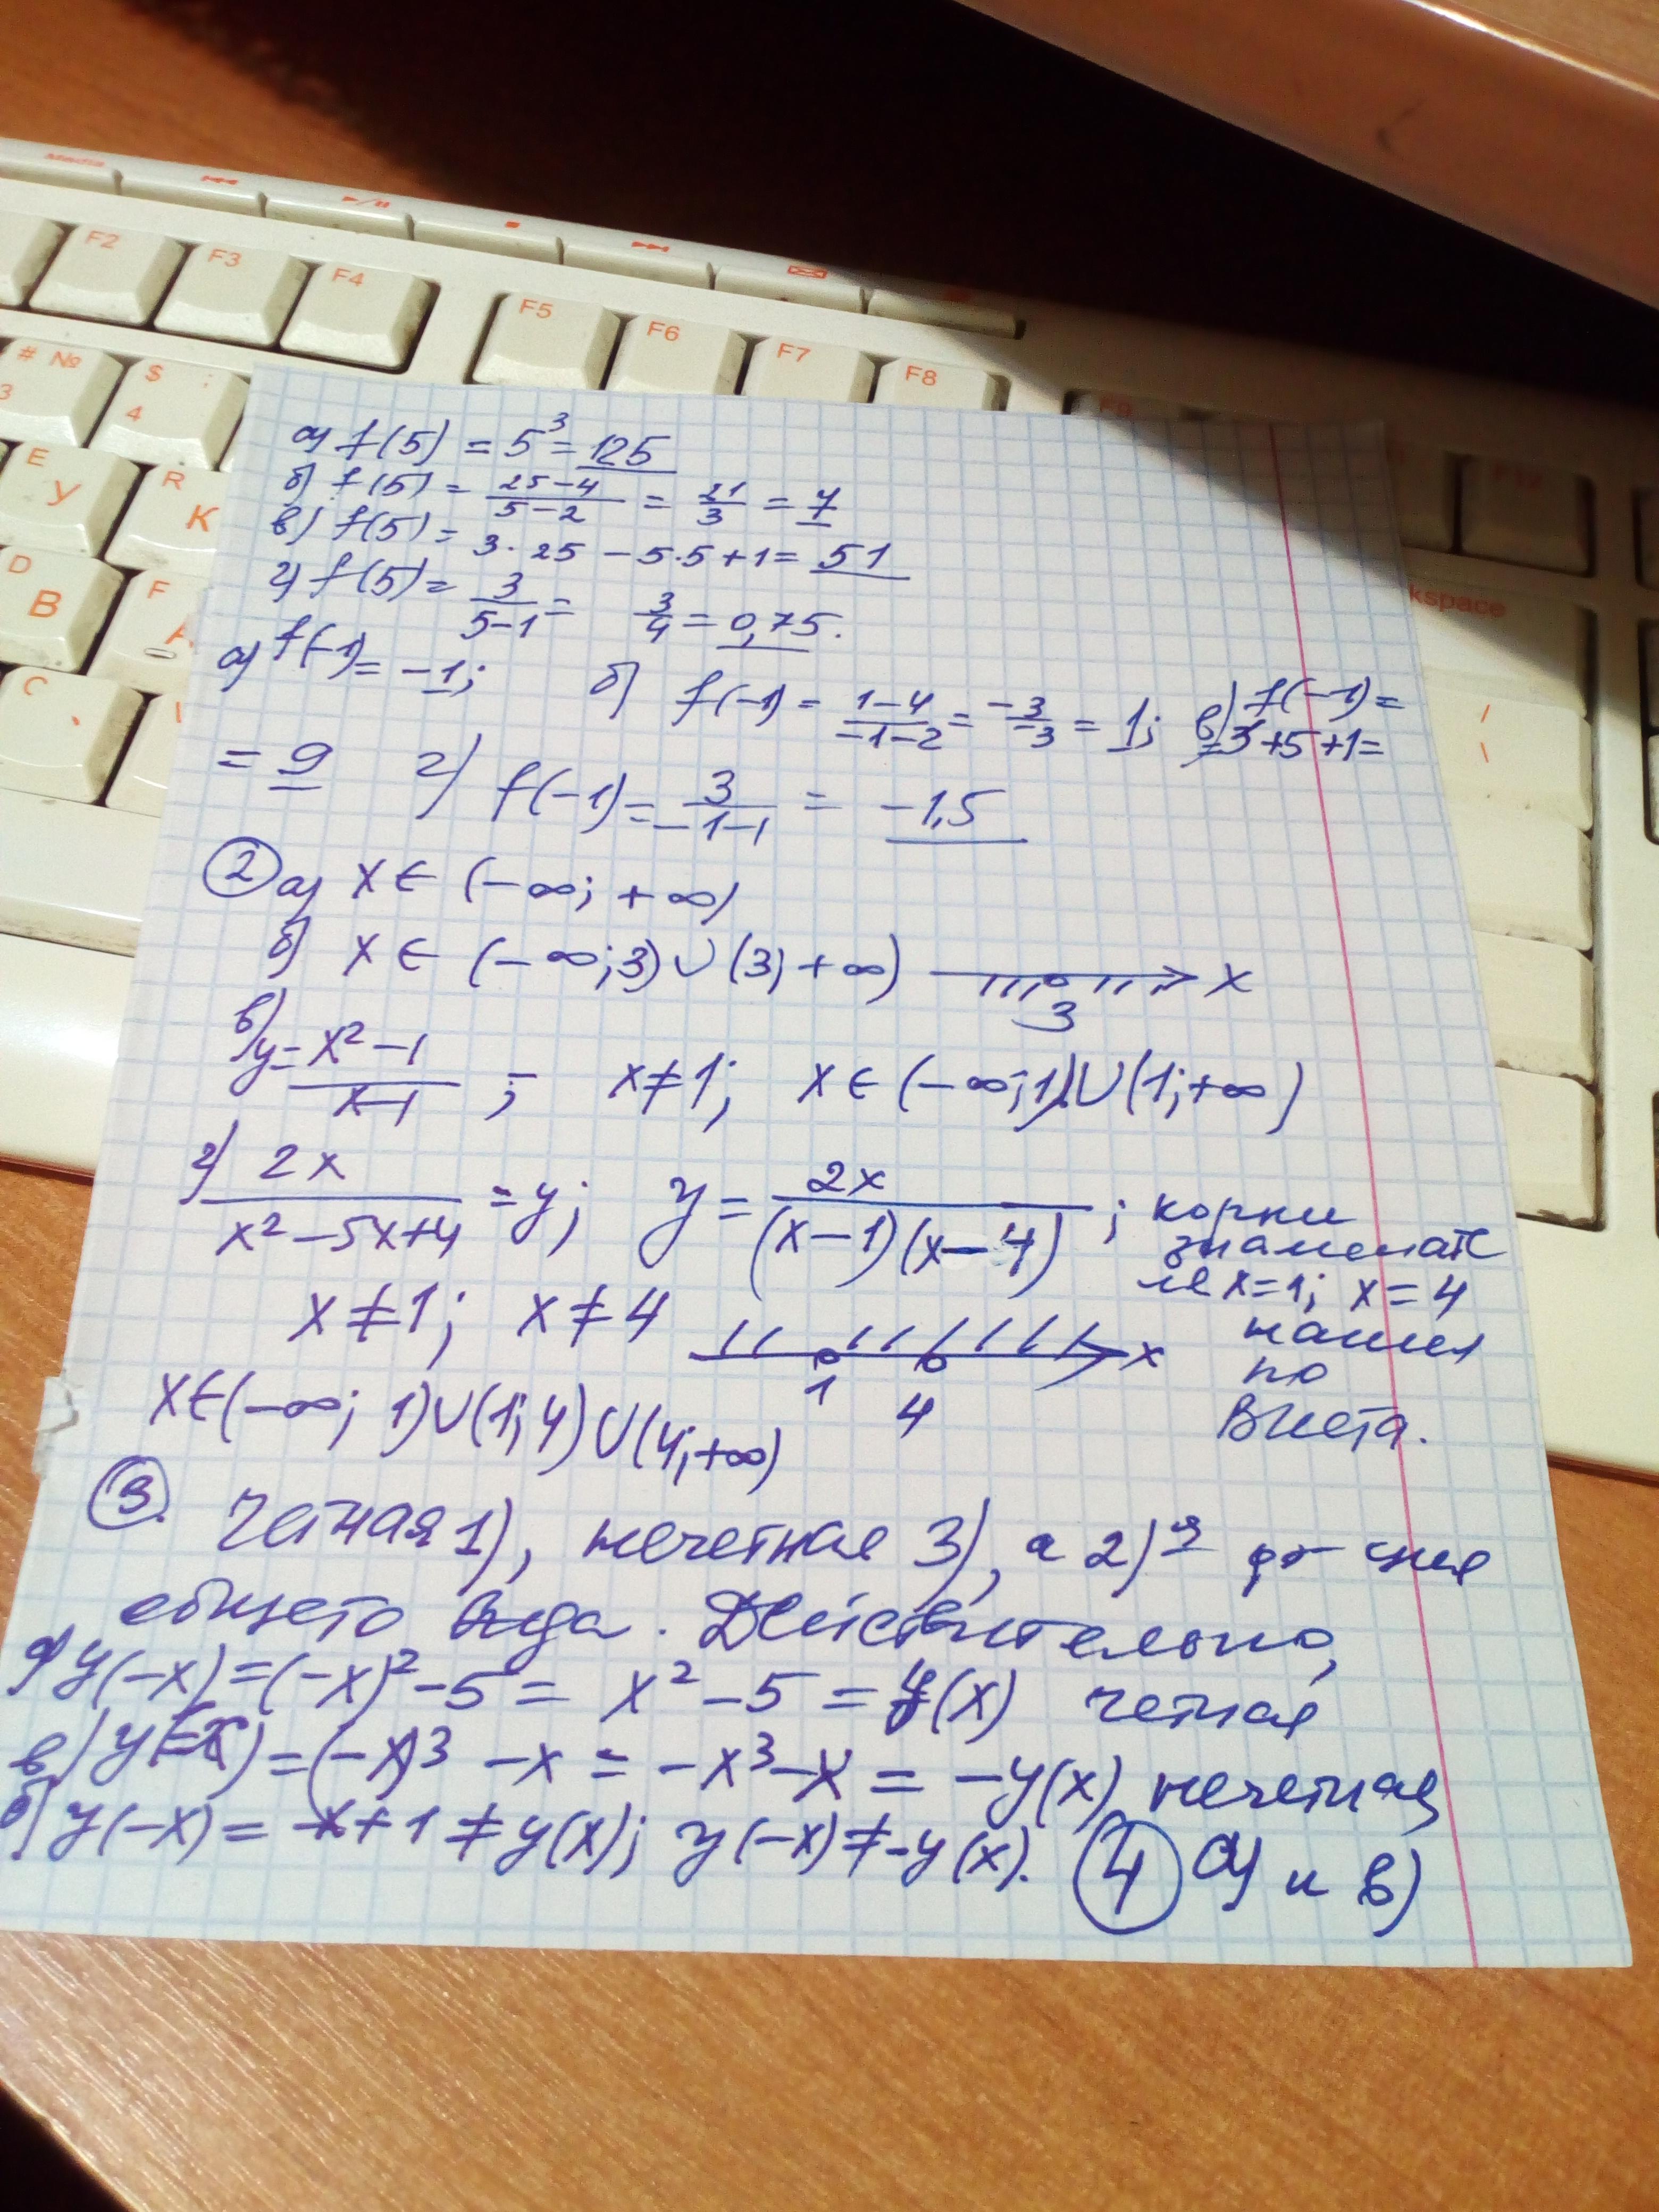 Media
F2 F3 F4 F5 F6 F7 F8 F9 F12
# № 3 $ ; 4
E У R К
D В F А
C
kspace
а) f(5) = 5³ = 125
б) f(5) = (25-4)/(5-2) = 21/3 = 7
в) f(5) = 3·25 - 5·5+1 = 51
г) f(5) = 3/(5-1) = 3/4 = 0,75.
а) f(-1) = -1; б) f(-1) = (1-4)/(-1-2) = -3/-3 = 1; в) f(-1) =
=3+5+1=
= 9 г) f(-1) = 3/(-1-1) = -1,5
② а) x ∈ (-∞; +∞)
б) x ∈ (-∞;3)∪(3;+∞) 3 x
в) y = (x²-1)/(x-1) ; x≠1; x ∈ (-∞;1)∪(1;+∞)
г) 2x/(x²-5x+4) = y; y = 2x/((x-1)(x-4)); корни
знаменате
ля x=1; x=4
x≠1; x≠4 1 4 x нашел
по
Виета.
x∈(-∞; 1)∪(1;4)∪(4;+∞)
③. Четная 1), нечетная 3), а 2)
общего вида. Действительно,
а) y(-x) = (-x)²-5 = x²-5 = y(x) четная
в) y(-x) = (-x)³ - x = -x³-x = -y(x) нечетная
б) y(-x) = -x+1 ≠ y(x); y(-x) ≠ -y(x). ④ а) и в)